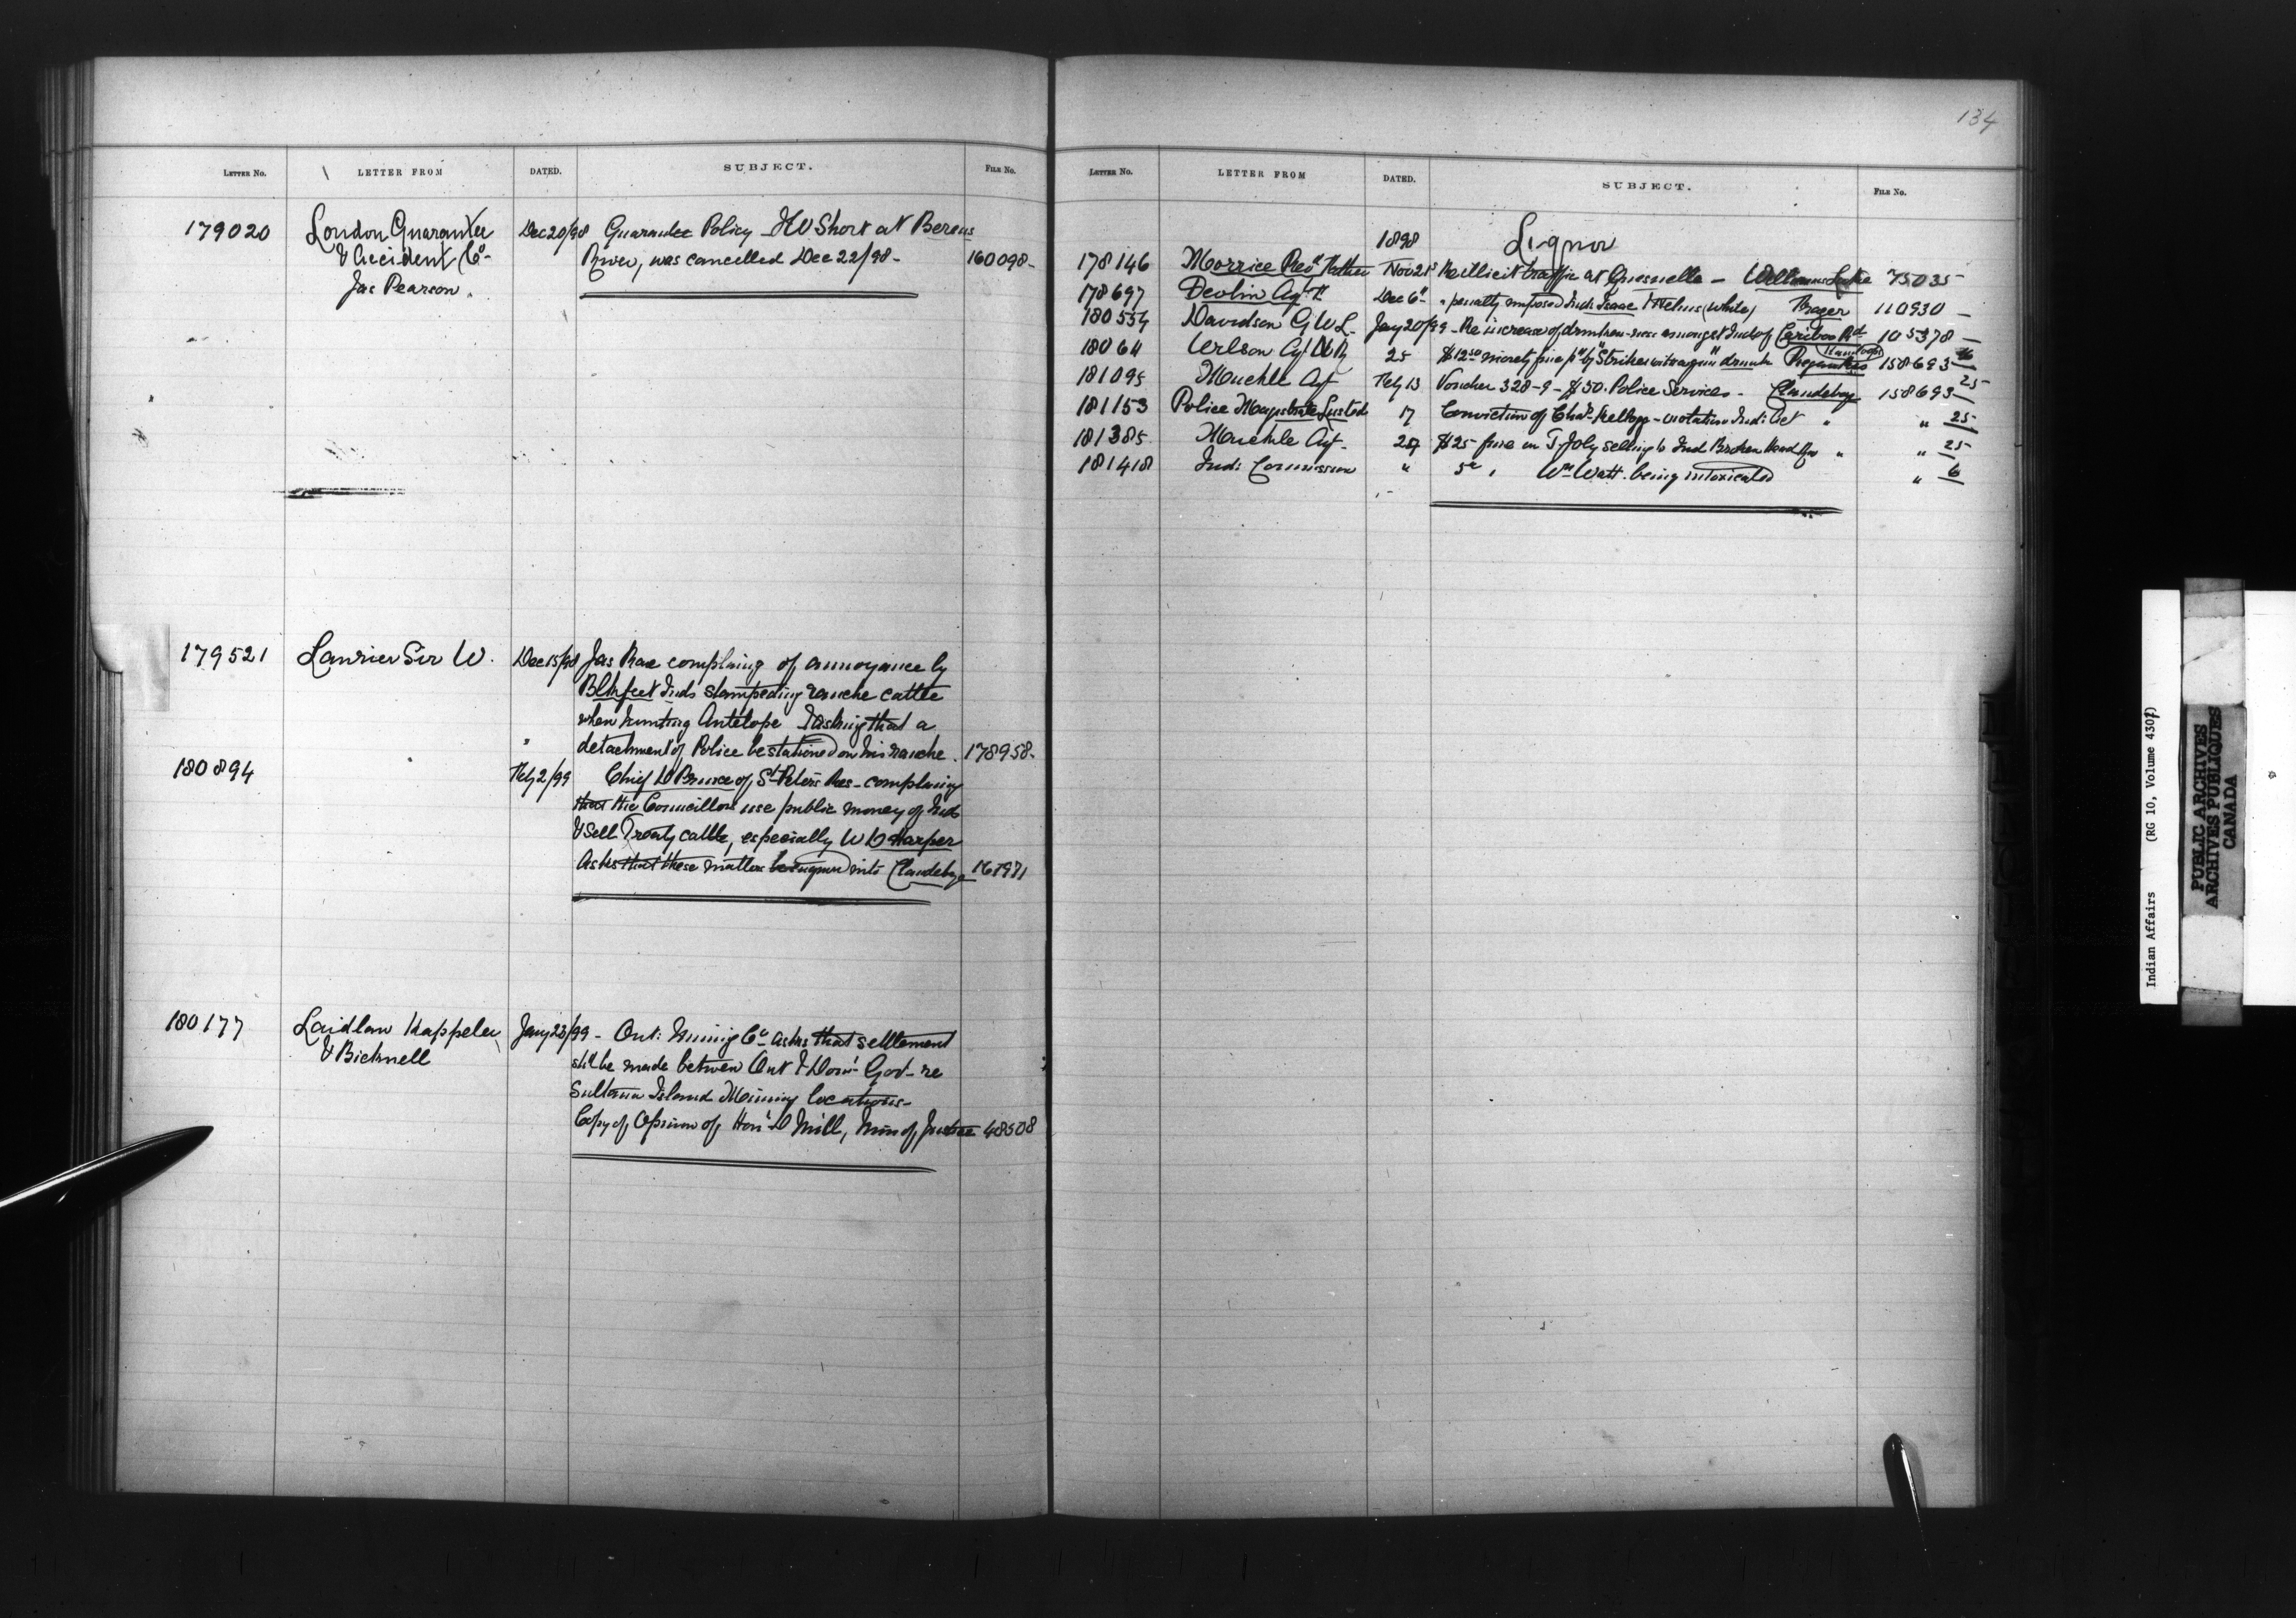 LETTER No. LETTER FROM DATED. SUBJECT. FILE No.
179020 London Guarantee Dec 20/98 Guarantee Policy - H V Short at Berens
& Accident Co- River, was cancelled Dec 22/98 - 160098-
Jas Pearson.
179521 Laurier Sir W. Dec 15/98 Jas Rae complaing of annoyance by
Blkfeet Inds stampeding ranche cattle
when hunting Antelope & asking that a
detachment of Police be stationed on his ranche. 178958-
180894 " Feby 2/99 Chief W Prince of St Peters Res- complaing
that the Councillors use public money of Inds
& sell Treaty cattle, especially W D Harper
Asks that these matters be enquired into Clandeboye
180177 Laidlaw Kappelew Jany 23/99 - Ont: Mining Co asks that settlement
& Bicknell shd be made between Ont & Dom: Gov- re
Sultana Island Mining locations-
Copy of Opinion of Hon: D Mill, Min of Justice 48508
134
LETTER No. LETTER FROM DATED. SUBJECT. FILE No.
1898 Liquor
178146 Morrice Revd Father Nov 21st Re illicit traffic at Quesnelle - Williams Lake 75035
178697 Devlin Agt Dec 6th " penalty imposed Ind: Isaac (White) 110930 -
180554 Davidson G W L. Jany 20/99 - Re increase of drunken-ness amongst Inds of Cariboo Rd 105378 -
18064 Wilson Agt 25 $12.50 moiety fine pd by "Strikes with a gun" drunk 158693 -
181095 Muckle Agt Feby 13 Voucher 328-9- $50. Police Services - Clandeboye 158693 - 25
181153 Police Magistrate 17 Conviction of Chas. Kellogg - violation Ind: Act " " 25
181385 Muckle Agt- $25 fine on T Joly selling to Ind Broken Head Rvr " " 25
181418 Ind: Commission " Wm Watt. being intoxicated " 6
Indian Affairs (RG 10, Volume 4307)
PUBLIC ARCHIVES
ARCHIVES PUBLIQUES
CANADA